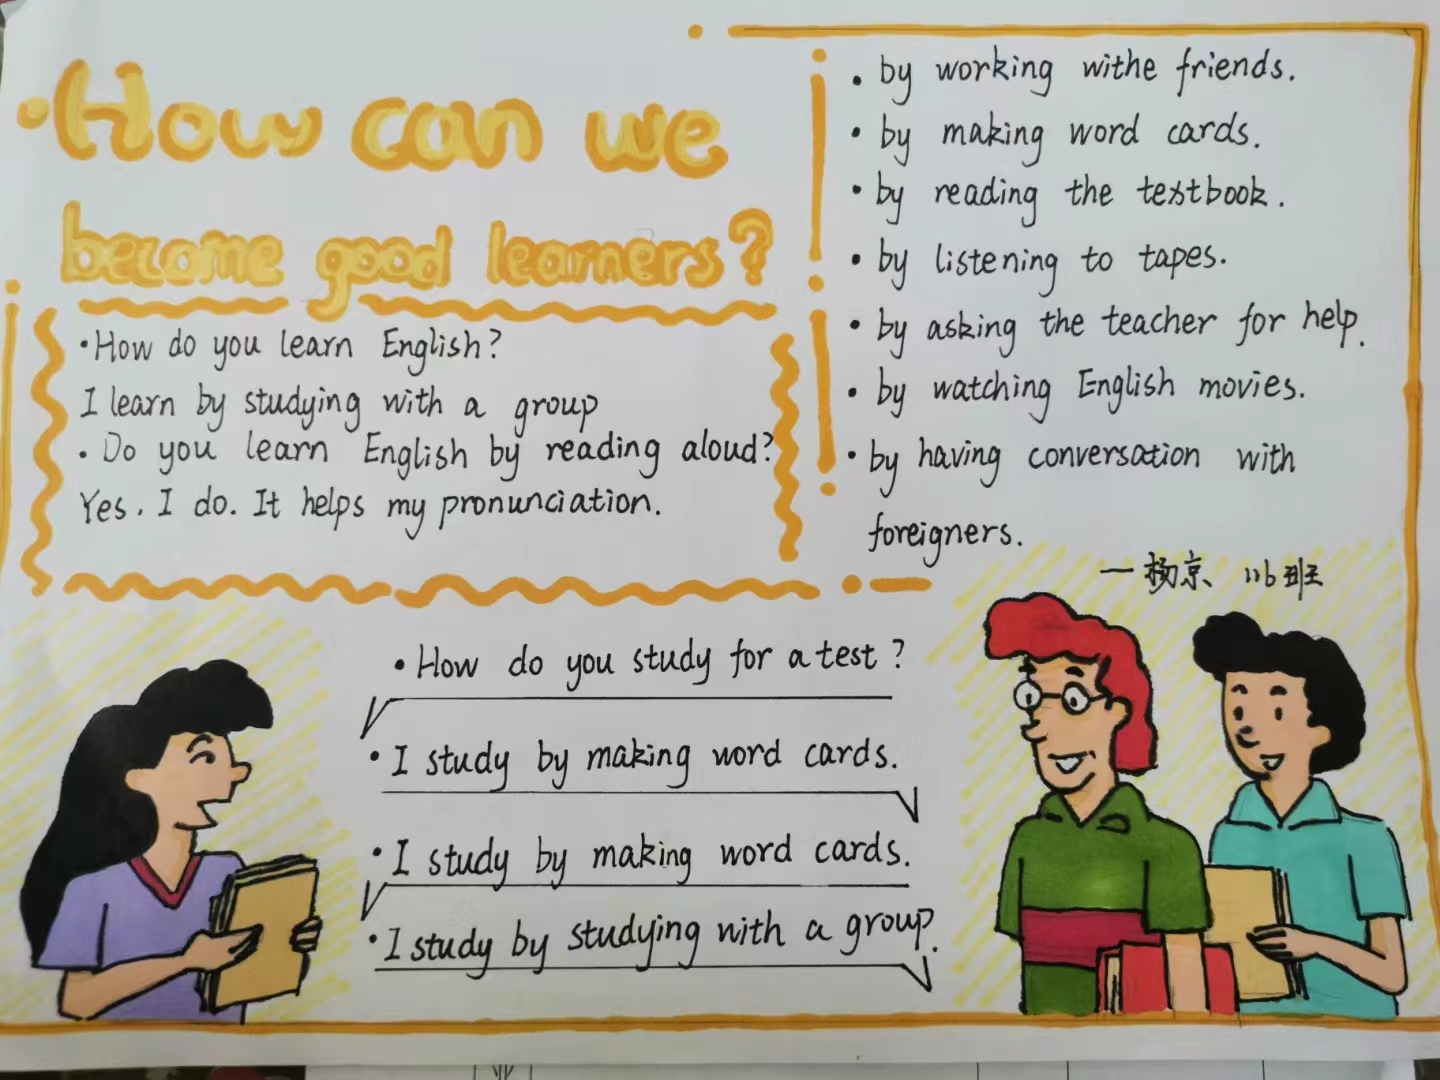 How can we
become good learners?
·How do you learn English?
I learn by studying with a group
·Do you learn English by reading aloud?
Yes. I do. It helps my pronunciation.
·by working withe friends.
·by making word cards.
·by reading the textbook.
·by listening to tapes.
·by asking the teacher for help.
·by watching English movies.
·by having conversation with
foreigners.
一杨京 116班
·How do you study for a test?
·I study by making word cards.
·I study by making word cards.
·I study by studying with a group.